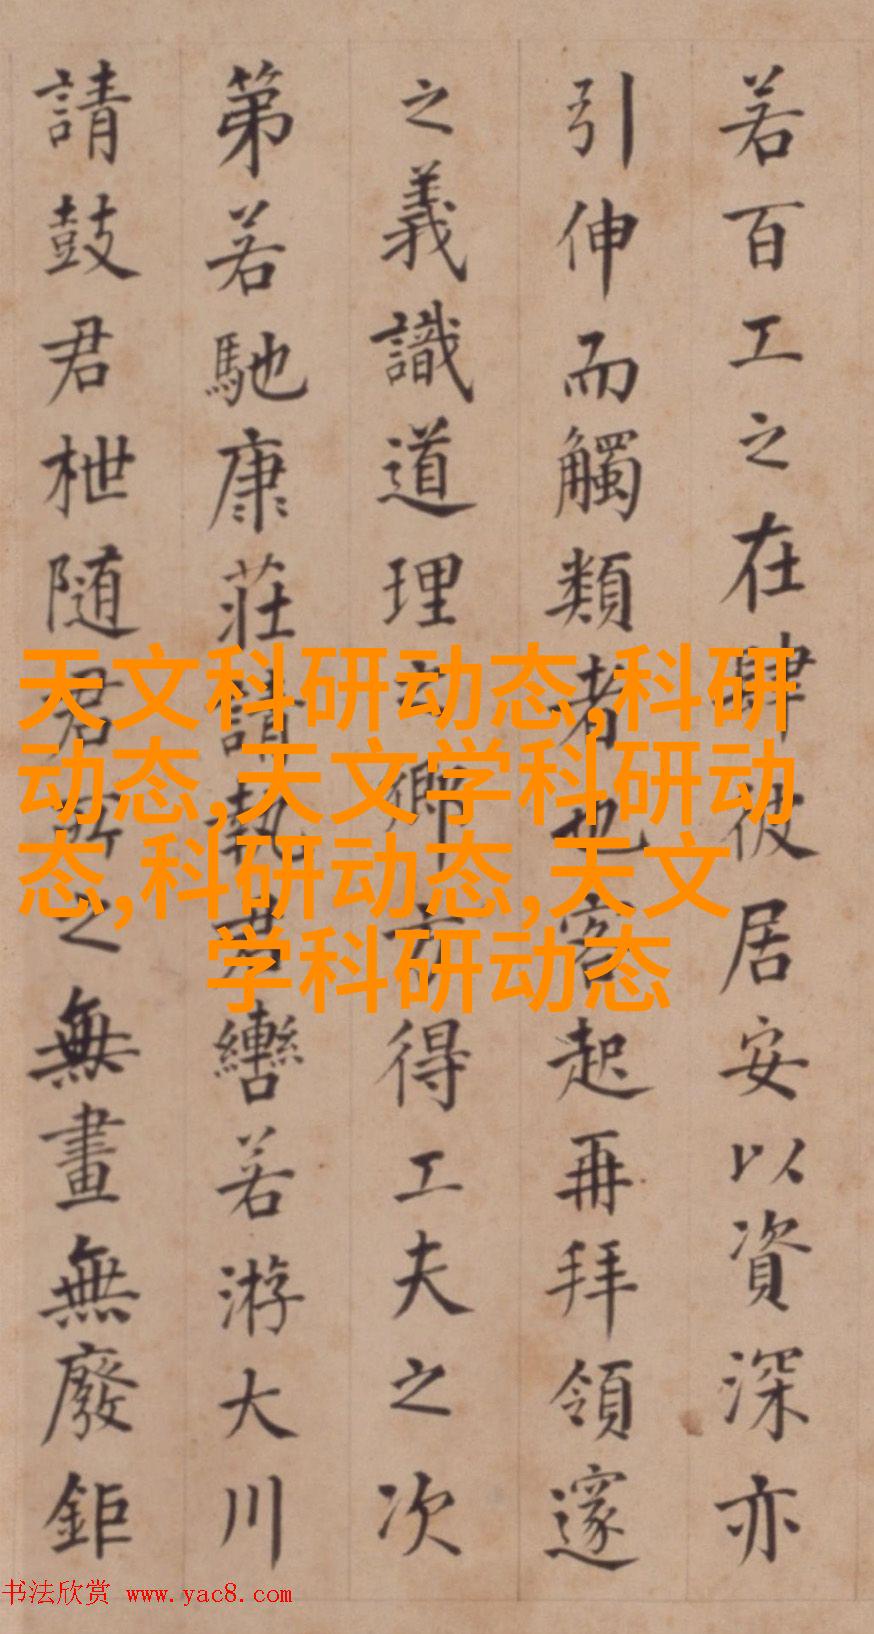 若百工之在肆彼居安以資深亦
引伸而觸類者也客起再拜領邃
之義識道理之鄉方得工夫之次
第若馳康莊請執君轡若游大川
請鼓君枻随君所之無畫無廢鉅
天文科研动态,科研
动态,天文学科研动
态,科研动态,天文
学科研动态
书法欣赏 www.yac8.com